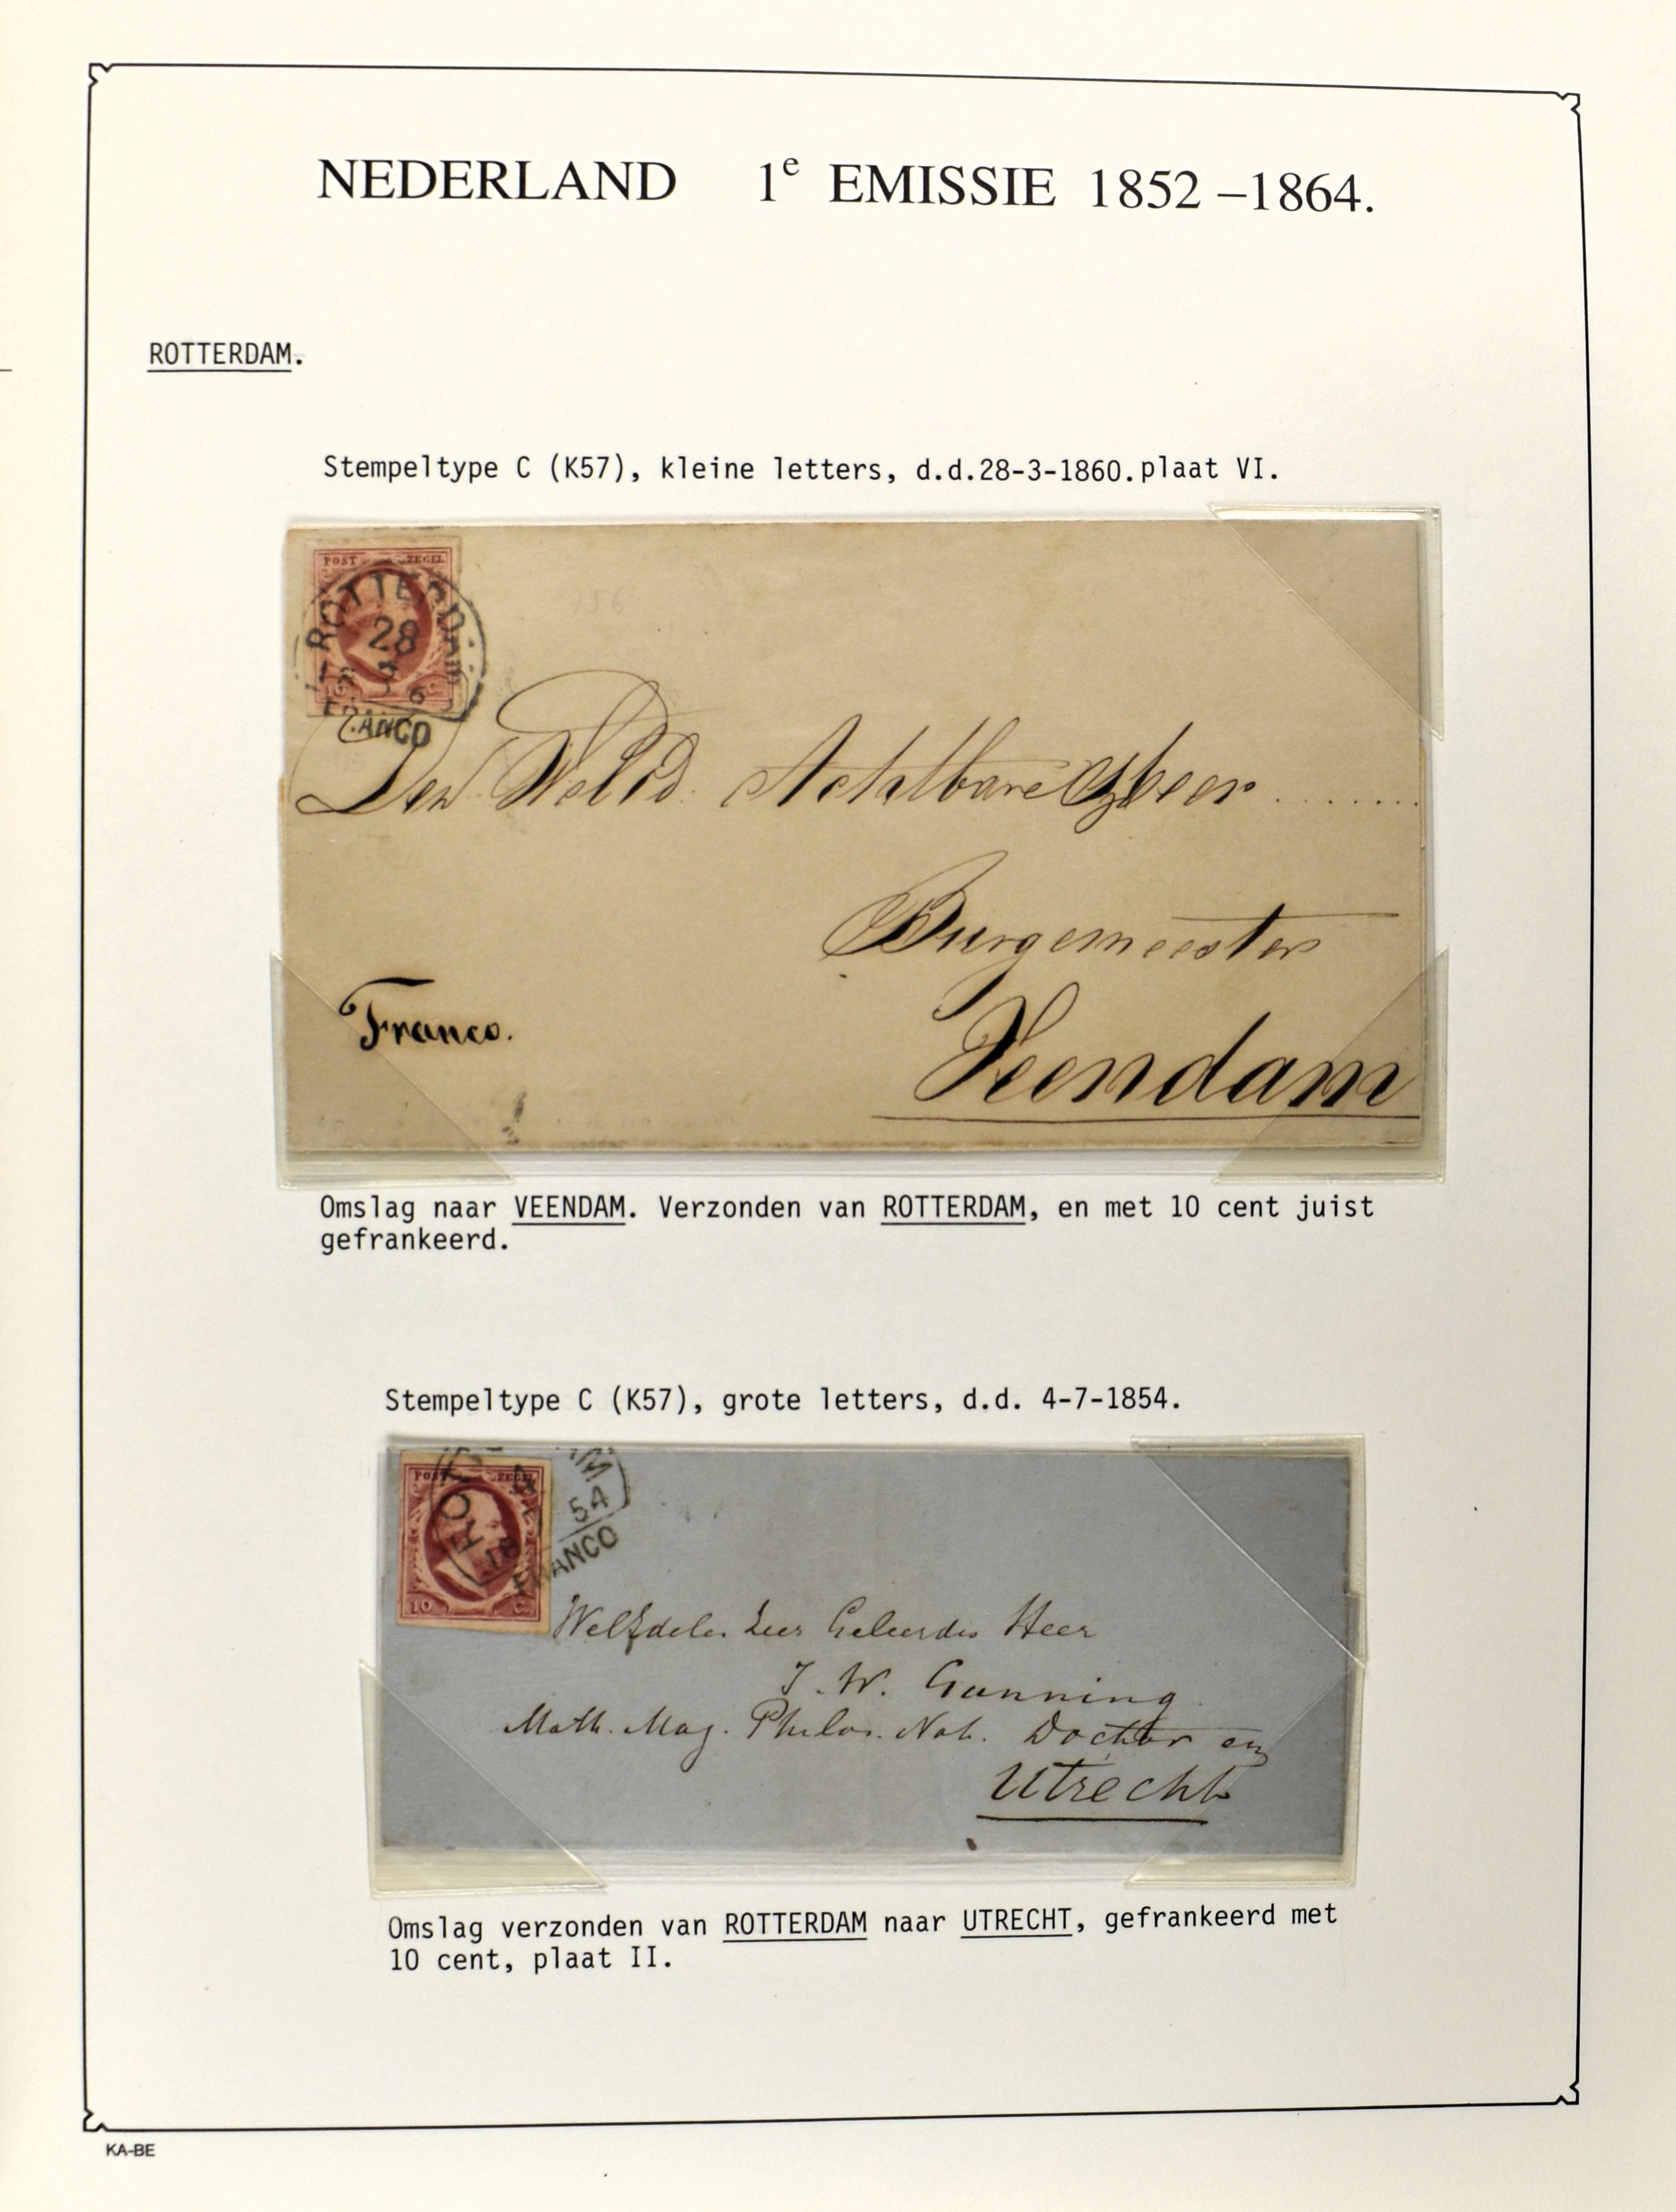 NEDERLAND 1e EMISSIE 1852 –1864.
ROTTERDAM.
Stempeltype C (K57), kleine letters, d.d.28-3-1860.plaat VI.
POST ZEGEL
ROTTERDAM
28
3
FRANCO
Den Weled. Achtbare
Burgemeester
Franco.
Veendam
Omslag naar VEENDAM. Verzonden van ROTTERDAM, en met 10 cent juist
gefrankeerd.
Stempeltype C (K57), grote letters, d.d. 4-7-1854.
POST ZEGEL
54
18
FRANCO
10 C.
WelEdele Zeer Geleerde Heer
J. W. Gunning
Math. Mag. Philos. Nat. Doctor en
Utrecht
Omslag verzonden van ROTTERDAM naar UTRECHT, gefrankeerd met
10 cent, plaat II.
KA-BE